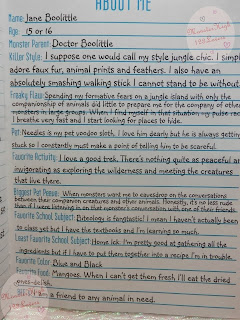 ABOUT ME
Name: Jane Boolittle
Age: 15 or 16
Monster Parent: Doctor Boolittle
Killer Style: I suppose one would call my style jungle chic. I simply
adore faux fur, animal prints and feathers. I also have an
absolutely smashing walking stick I cannot stand to be without.
Freaky Flaw: Spending my formative years on a jungle island with only the
companionship of animals did little to prepare me for the company of other
monsters in large groups. When I find myself in that situation, my pulse races
I breathe very fast and I start looking for places to hide.
Pet: Needles is my pet voodoo sloth. I love him dearly but he is always getting
stuck so I constantly must make a point of telling him to be careful.
Favorite Activity: I love a good trek. There's nothing quite as peaceful and
invigorating as exploring the wilderness and meeting the creatures
that live there.
Biggest Pet Peeve: When monsters want me to eavesdrop on the conversations
between their companion creatures and other animals. Honestly, it's no less rude
than if I were listening in on that monster's conversation with one of their friends.
Favorite School Subject: Biteology is fangtastic! I mean I haven't actually been
to class yet but I have the textbooks and I'm learning so much.
Least Favorite School Subject: Home Ick. I'm pretty good at gathering all the
ingredients but if I have to put them into a recipe I'm in trouble.
Favorite Color: Blue and Black
Favorite Food: Mangoes. When I can't get them fresh I'll eat the dried
ones
a friend to any animal in need.